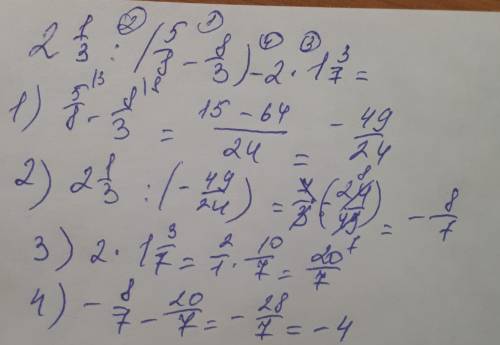 2 1/3 : (5/8 - 8/3) - 2 · 1 3/7 =
② ① ④ ③
1) 5/8 - 8/3 = (15 - 64)/24 = - 49/24
2) 2 1/3 : (- 49/24) = 7/3 · (- 24/49) = - 8/7
3) 2 · 1 3/7 = 2/1 · 10/7 = 20/7
4) - 8/7 - 20/7 = - 28/7 = - 4